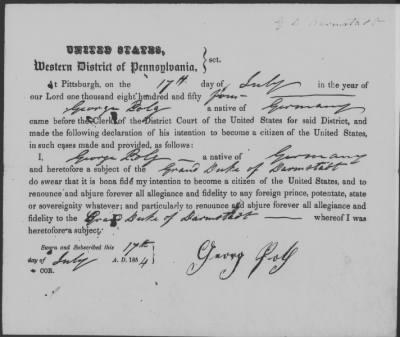 G. D. Darmstadt
UNITED STATES,
Western District of Pennsylvania, } sct.
At Pittsburgh, on the 17th day of July in the year of
our Lord one thousand eight hundred and fifty four
George a native of Germany
came before the Clerk of the District Court of the United States for said District, and
made the following declaration of his intention to become a citizen of the United States,
in such cases made and provided, as follows:
I, George a native of Germany
and heretofore a subject of the Grand Duke of Darmstadt
do swear that it is bona fide my intention to become a citizen of the United States, and to
renounce and abjure forever all allegiance and fidelity to any foreign prince, potentate, state
or sovereignty whatever; and particularly to renounce and abjure forever all allegiance and
fidelity to the Grand Duke of Darmstadt — whereof I was
heretofore a subject.
Sworn and Subscribed this 17th
day of July A. D. 1854
COR.
Georg